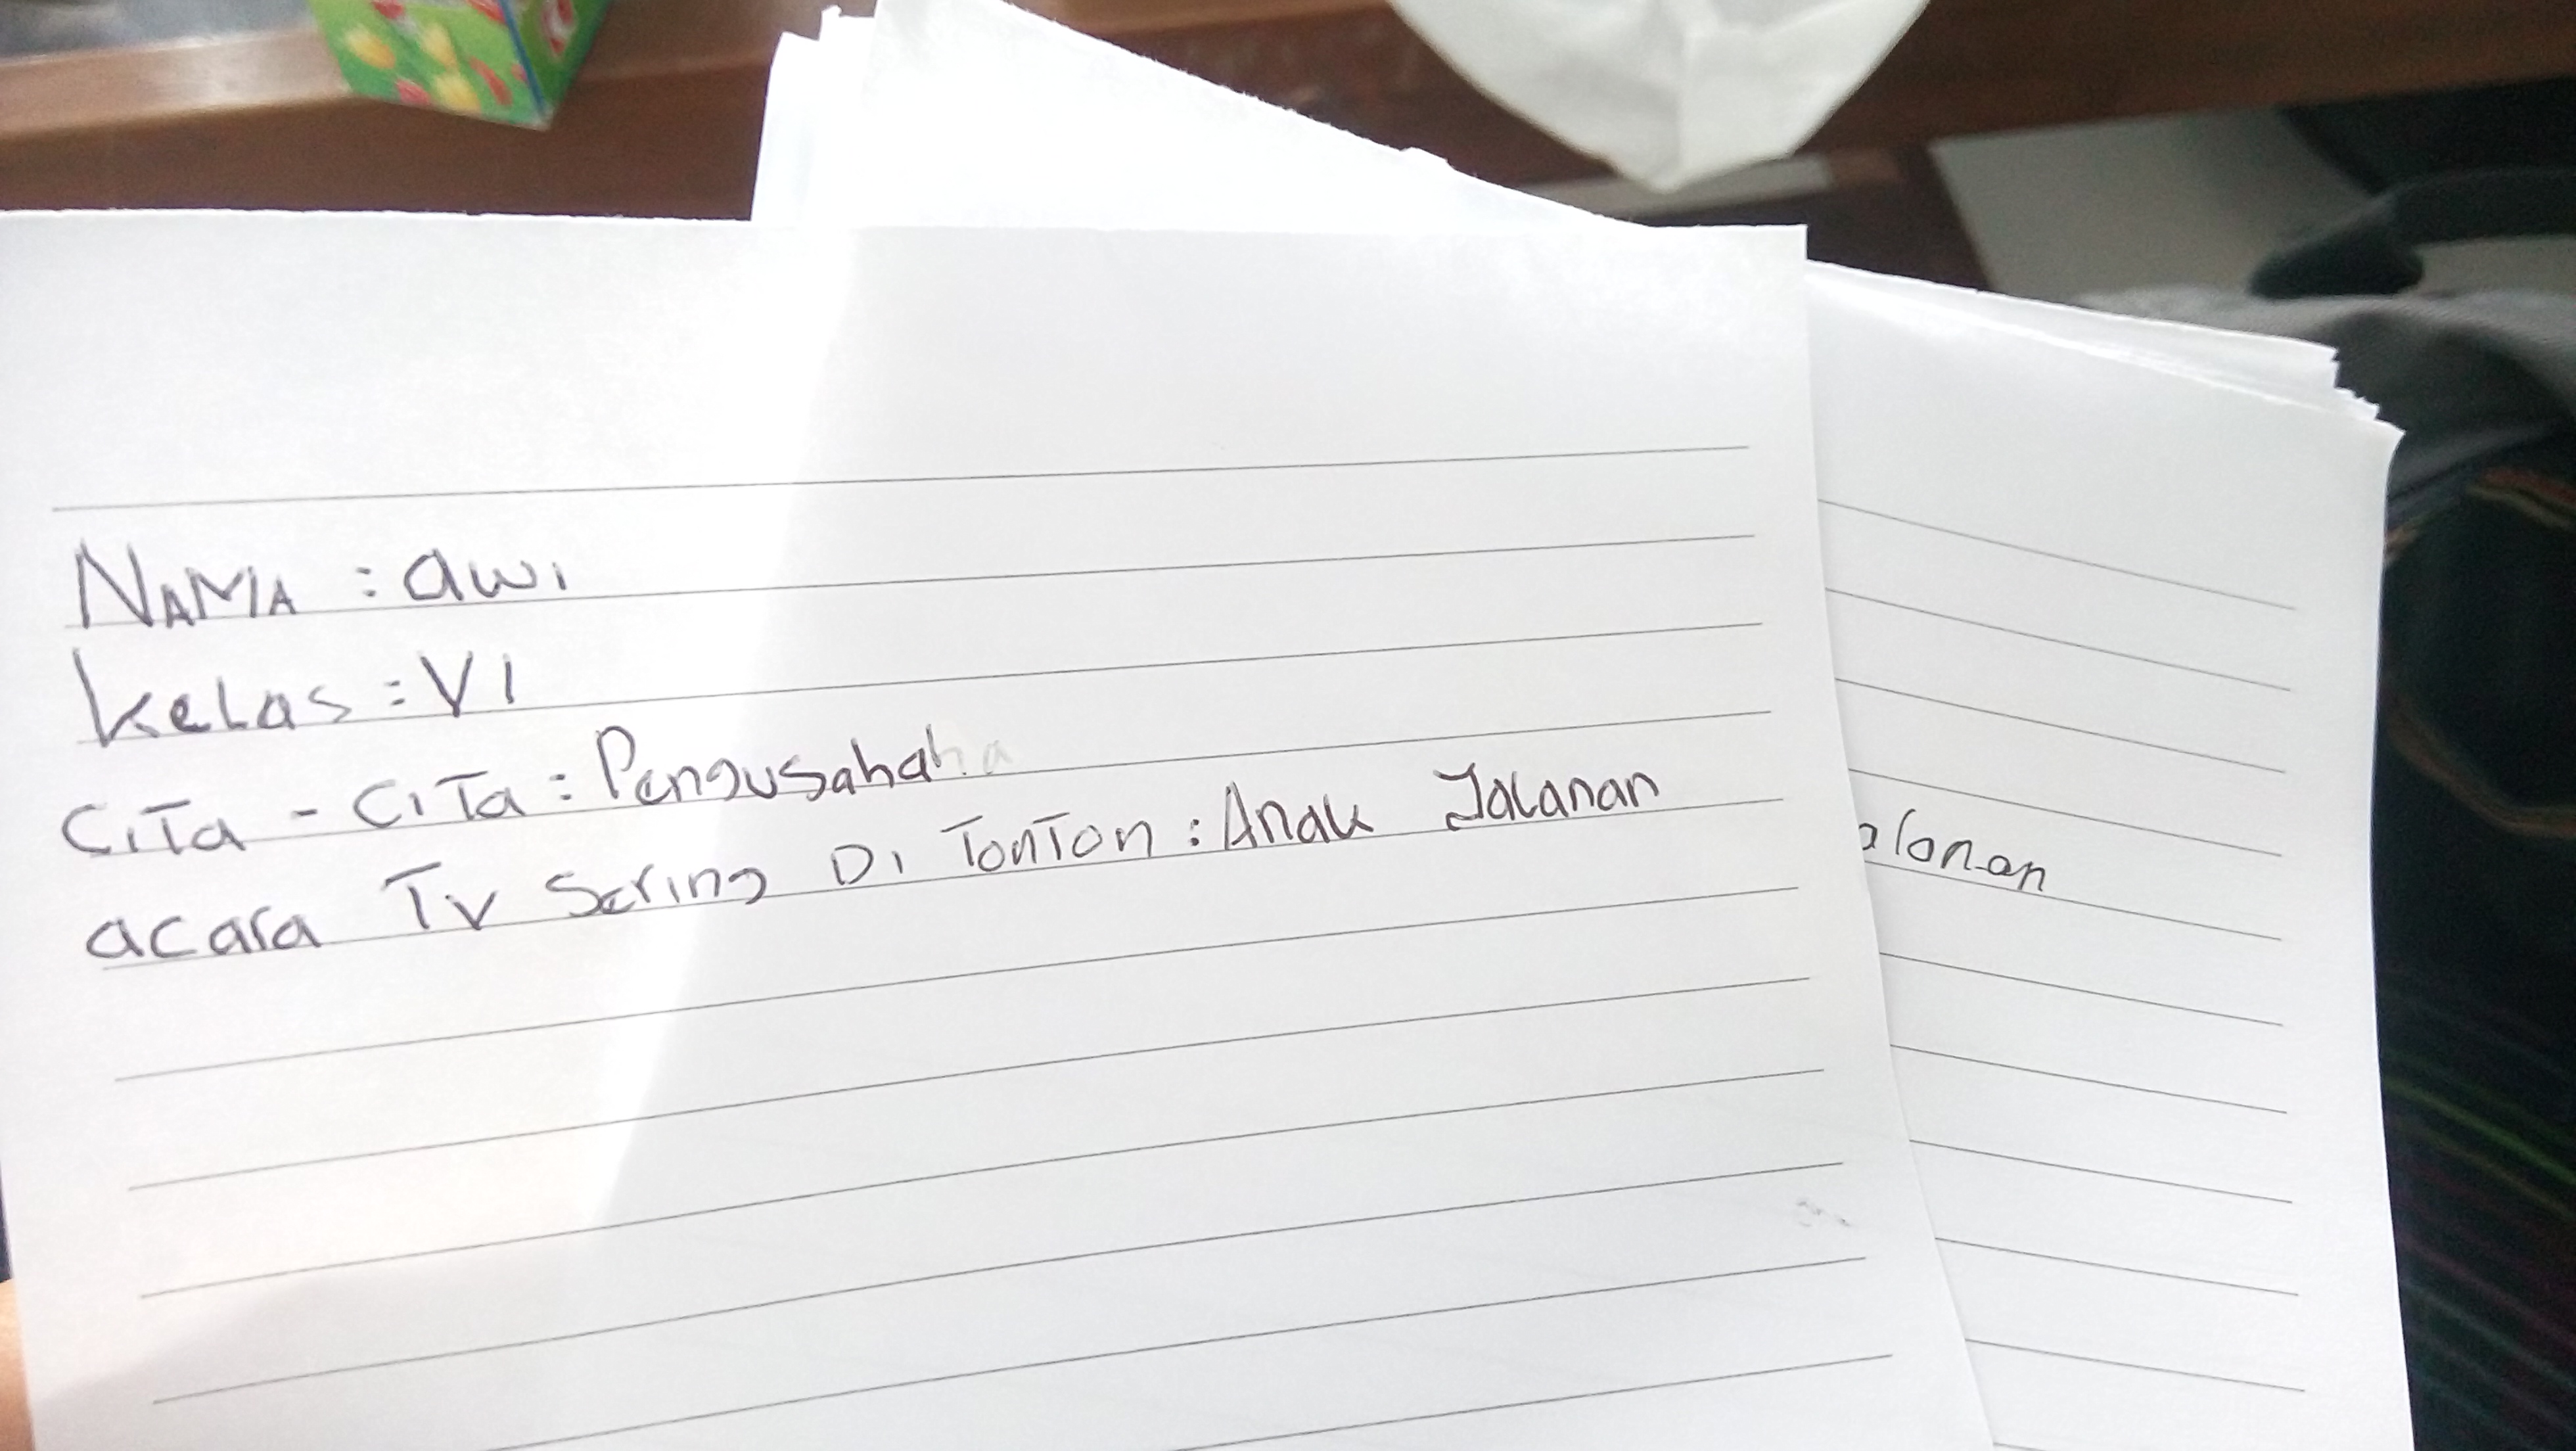 NAMA : awi
Kelas : VI
CiTa - CiTa : Pengusahaha
acara TV Sering Di TonTon : Anak Jalanan
alanan